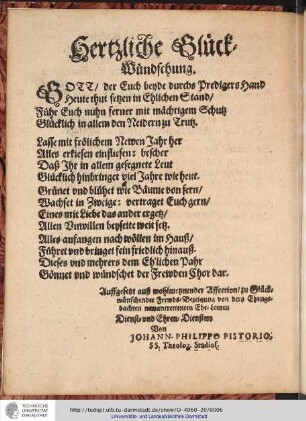 Hertzliche Glück-
Wündschung.
GOTT/ der Euch beyde durchs Predigers Hand
Heute thut setzen in Ehlichen Stand/
Führ Euch nuhn ferner mit mächtigem Schutz
Glücklich in allem den Neidern zu Trutz.
Lasse mit frölichem Newen Jahr her
Alles erkiesen einfliesen: bescher
Daß Ihr in allem gesegnete Leut
Glücklich hinbringet viel Jahre wie heut.
Grünet und blühet wie Bäume von fern/
Wachset in Zweige: vertraget Euch gern/
Eines mit Liebe das ander ergetz/
Allen Unwillen beyseite weit setz.
Alles anfangen nach wöllen im Hauß/
Führet und bringet fein friedlich hinauß.
Dieses und mehrers dem Ehlichen Pahr
Gönnet und wündschet der Frewden Chor dar.
Auffgesetzt auß wohlmeynender Affection/ zu Glück-
wünschender Frewds-Bezeigung von dero Ehrnge-
dachten Ehe-Leuten
Dienst- und Ehren/
Von
JOHANN-PHILIPPO PISTORIO,
SS. Theolog. Studios.
TECHNISCHE
UNIVERSITÄT
DARMSTADT
http://tudigit.ulb.tu-darmstadt.de/show/O-4060-20/0006
Universitäts- und Landesbibliothek Darmstadt